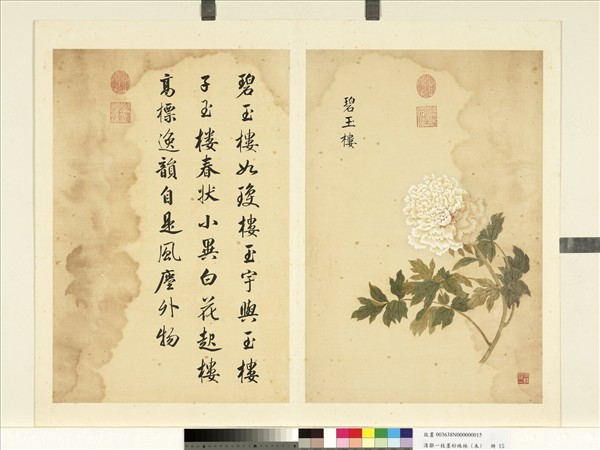 碧玉樓
碧玉樓如瓊樓玉宇與玉樓
子玉樓春狀小異白花起樓
高標逸韻自是風塵外物
故畫 003638N000000015
清鄒一桂畫 15